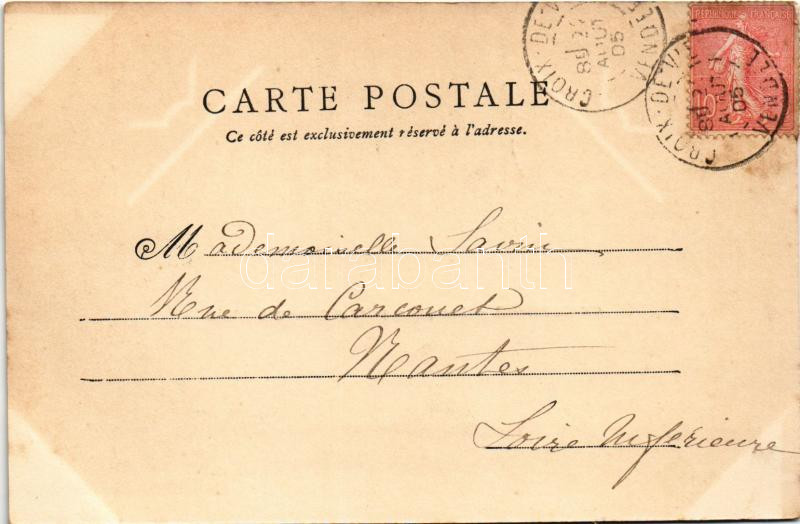 CROIX-DE-VIE
AOUT
05
VENDEE
REPUBLIQUE FRANÇAISE
10
CROIX-DE-VIE
AOUT
05
VENDEE
CARTE POSTALE
Ce côté est exclusivement réservé à l'adresse.
Mademoiselle Savin
darabanth
Rue de Carcouet
Nantes
Loire Inférieure